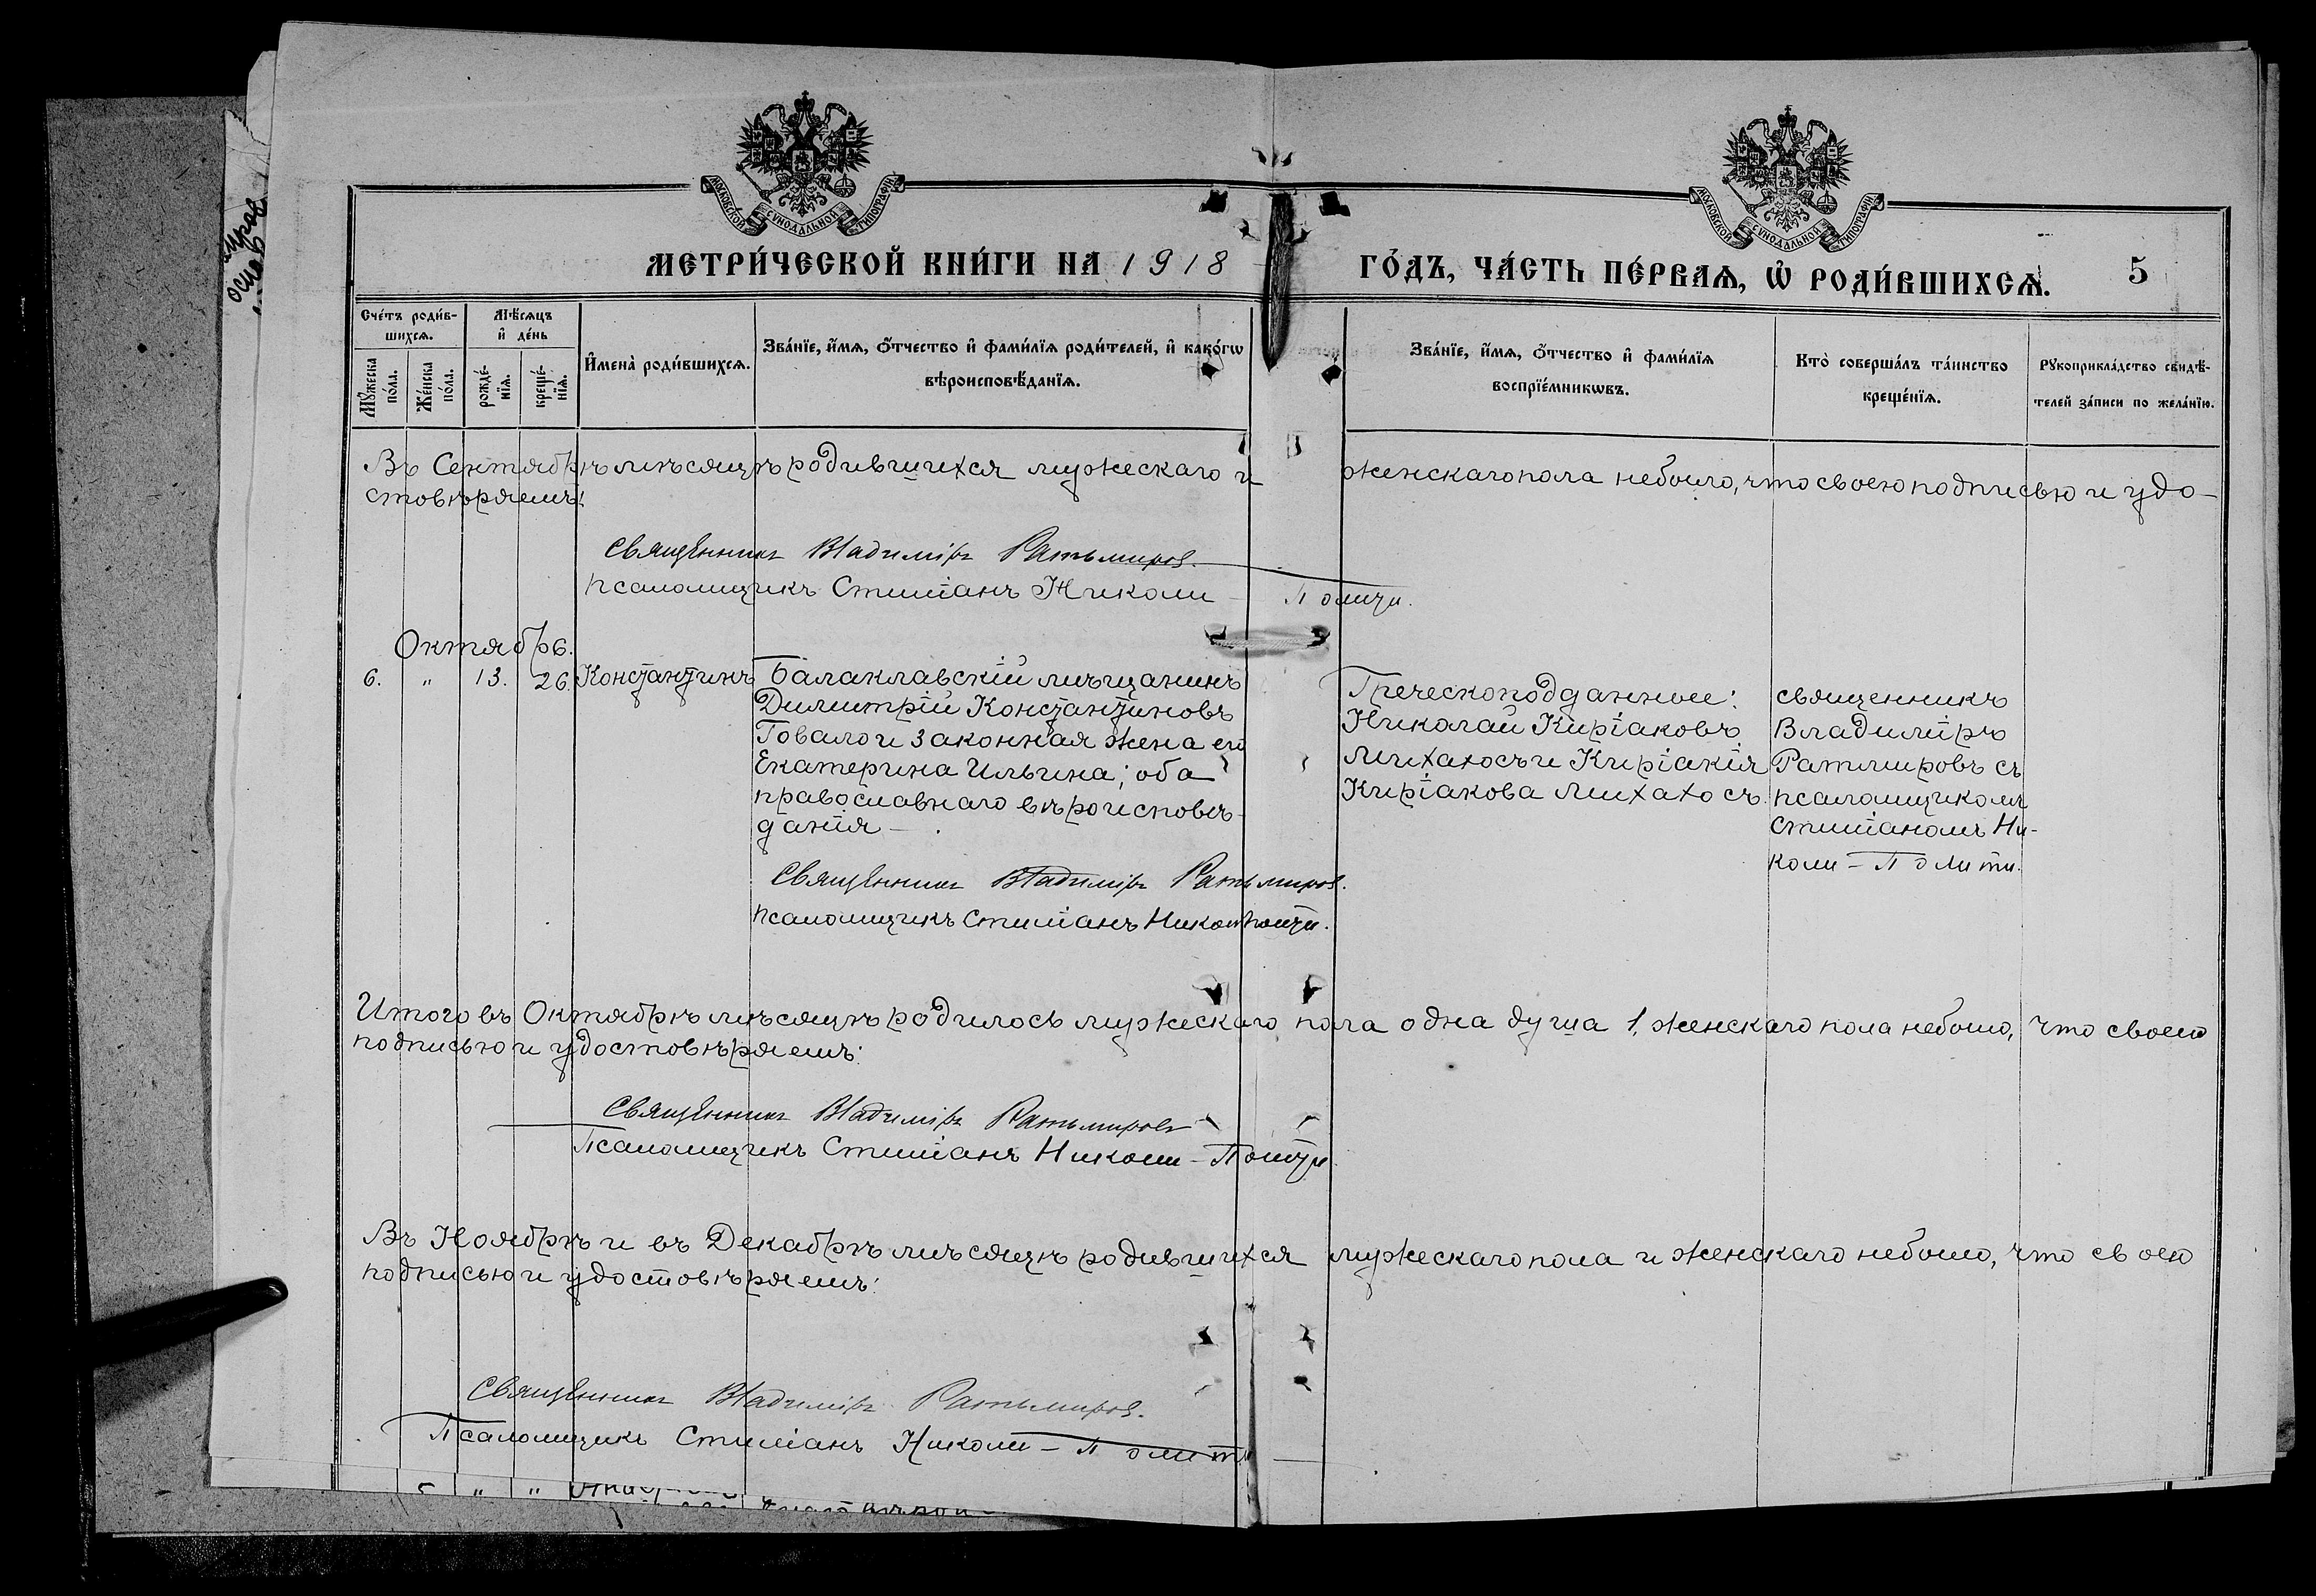 МОСКОВСКОЙ СѴНОДАЛЬНОЙ ТИПОГРАФІИ
МОСКОВСКОЙ СѴНОДАЛЬНОЙ ТИПОГРАФІИ
МЕТРИ́ЧЕСКОЙ КНИ́ГИ НА 1918 ГО́ДЪ, ЧА́СТЬ ПЕ́РВАѦ, Ѡ҆ РОДИ́ВШИХСѦ. 5
Сче́тъ роди́в-
шихсѧ.
Мꙋ́жеска по́ла.
Же́нска по́ла.
Мѣ́сѧцъ и҆ де́нь
рожде́-нїѧ.
креще́-нїѧ.
И҆мена̀ роди́вшихсѧ.
Зва́нїе, и҆́мѧ, ѻ҆́тчество и҆ фами́лїѧ роди́телей, и҆ како́гѡ
вѣроисповѣ́данїѧ.
Зва́нїе, и҆́мѧ, ѻ҆́тчество и҆ фами́лїѧ
воспрїе́мникѡвъ.
Кто̀ соверша́лъ та́инство
креще́нїѧ.
Рꙋкоприкла́дство свидѣ́-
телей за́писи по жела́нїю.
Въ Сентябрѣ мѣсяцѣ родившихся мужескаго и женскаго пола небыло, что своею подписью и удо-
стовѣряемъ:
Священникъ Владиміръ Ратьмиров.
Псаломщикъ Стиліанъ Николи - Полити.
Октябрь.
6. " 13. 26. Константинъ
Балаклавскій мѣщанинъ
Димитрій Константиновъ
Говало и законная жена его
Екатерина Ильина; оба
православнаго вѣроисповѣ-
данія -.
Греческоподданные:
Николай Киріаковъ
Михахосъ и Киріакія
Киріакова Михахосъ.
священникъ
Владиміръ
Ратмировъ съ
псаломщикомъ
Стиліаномъ Ни-
коли - Полити.
Священникъ Владиміръ Ратьмиров.
Псаломщикъ Стиліанъ Николи Полити.
Итого въ Октябрѣ мѣсяцѣ родилось мужескаго пола одна душа 1, женскаго пола небыло, что своею
подписью и удостовѣряемъ:
Священникъ Владиміръ Ратьмировъ
Псаломщикъ Стиліанъ Николи - Полити.
Въ Ноябрѣ и въ Декабрѣ мѣсяцѣ родившихся мужескаго пола и женскаго небыло, что своею
подписью и удостовѣряемъ:
Священникъ Владиміръ Ратьмиров.
Псаломщикъ Стиліанъ Николи - Полити